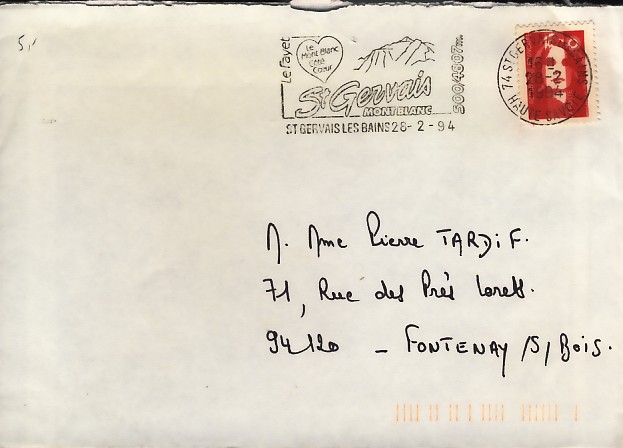 5,-
Le Fayet
Le
Mont Blanc
Côté
Cœur
St Gervais
MONT BLANC
500/4807m.
ST GERVAIS LES BAINS 28-2-94
74 ST GERVAIS LES BAINS
28-2
HAUTE SAVOIE
M. Mme Pierre TARDIF.
71, Rue des Prés Lorets.
94120 - FONTENAY /S/ BOIS.